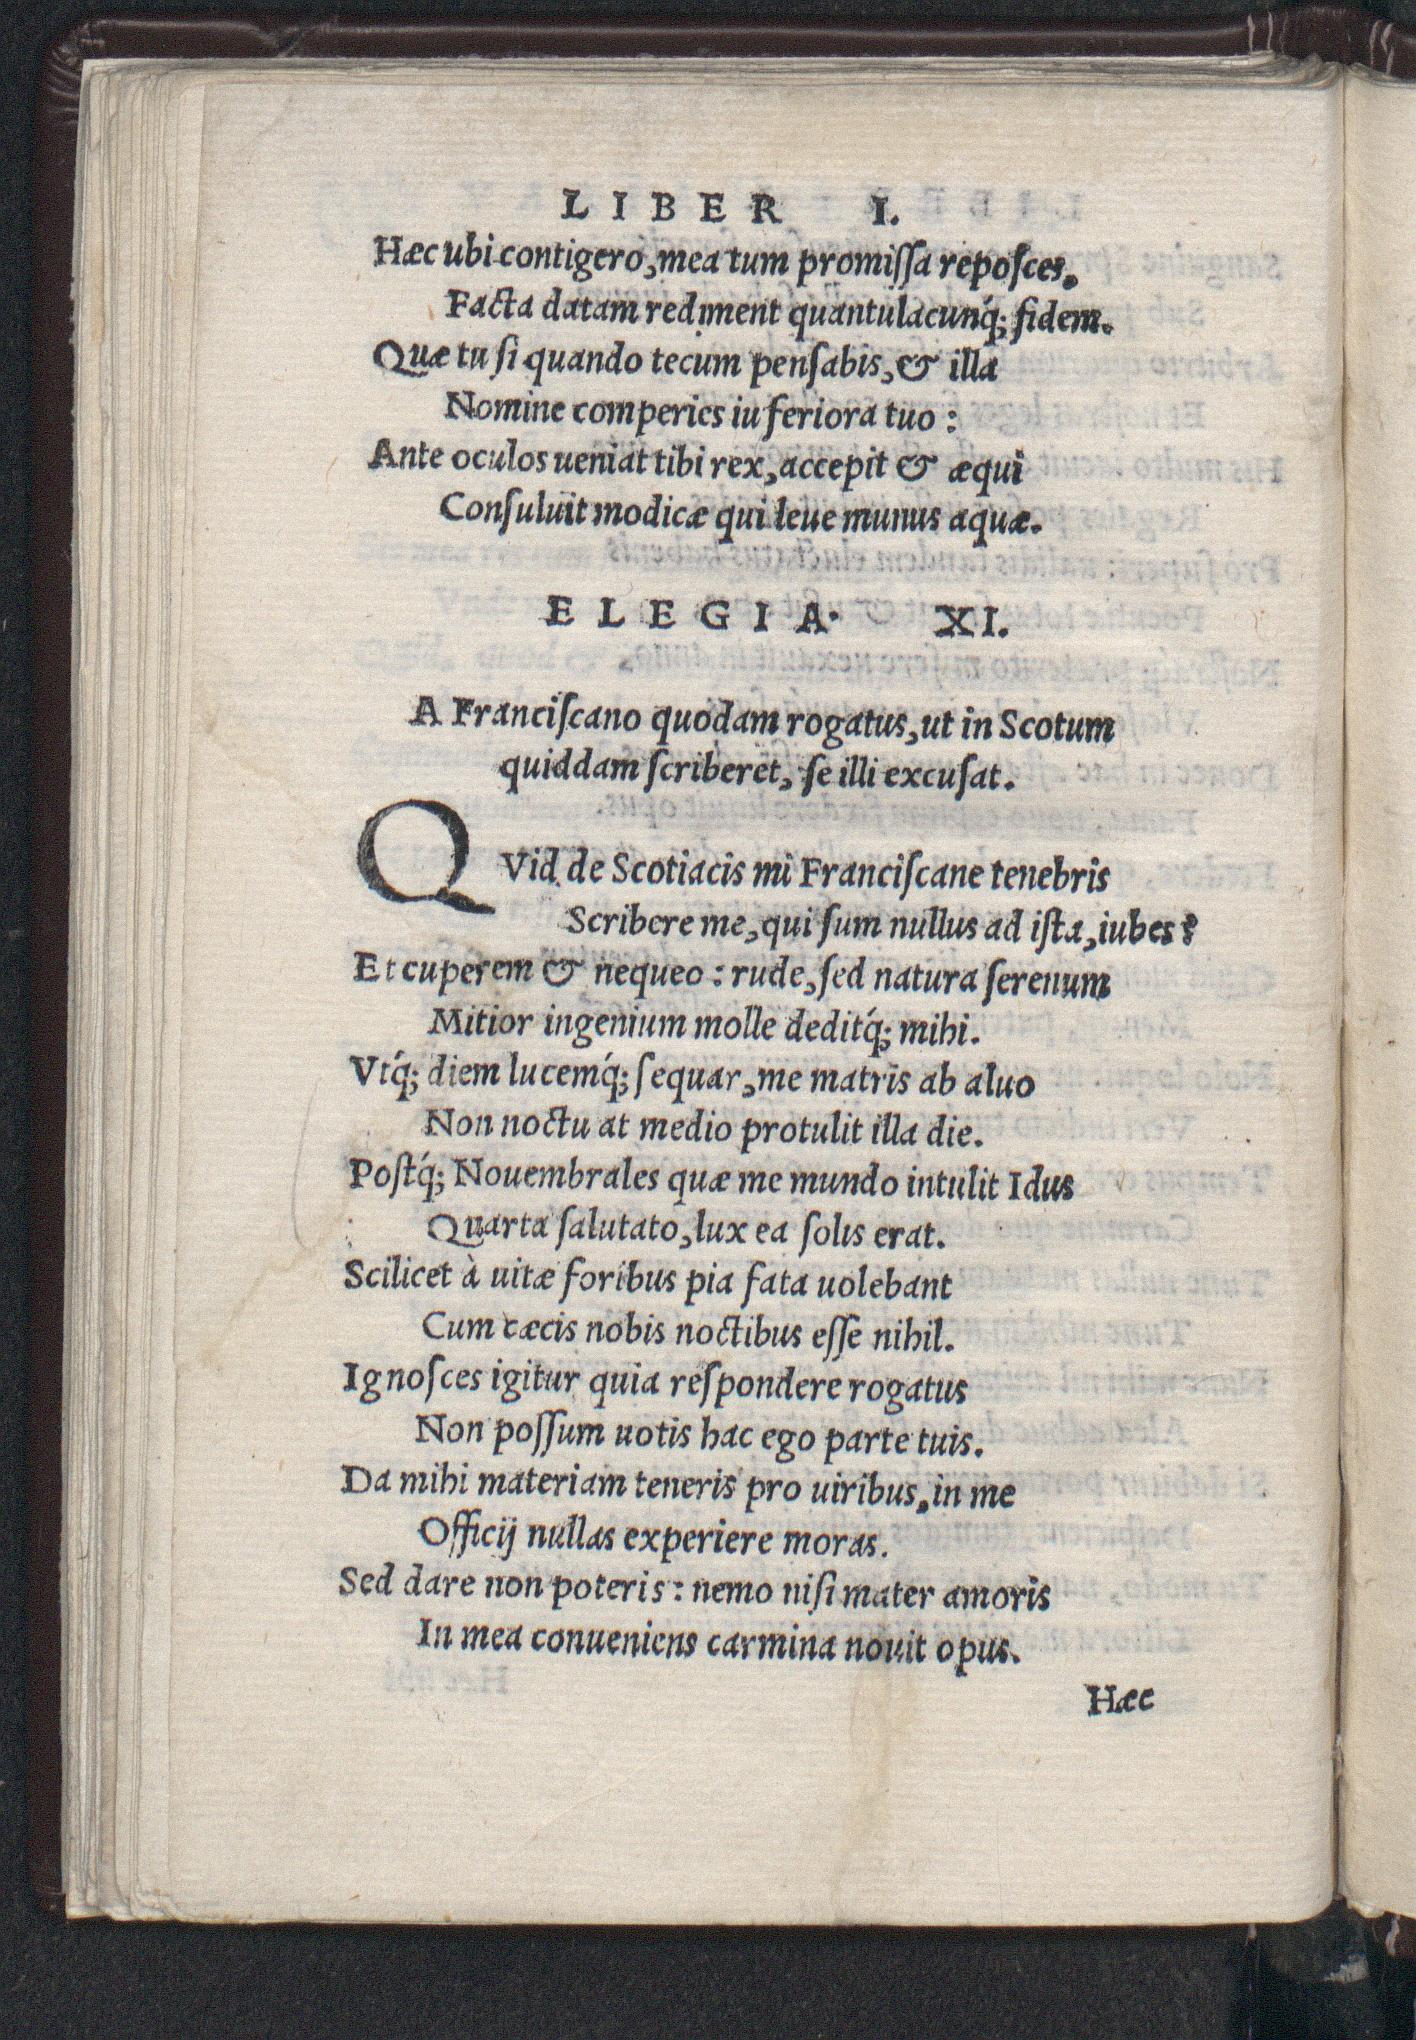 LIBER I.
Hæc ubi contigero, mea tum promiſſa repoſces.
Facta datam rediment quantulacunq́; fidem.
Quæ tu ſi quando tecum penſabis, & illa
Nomine comperies iuferiora tuo:
Ante oculos ueniat tibi rex, accepit & æqui
Conſuluit modicæ qui leue munus aquæ.
ELEGIA· XI.
A Franciſcano quodam rogatus, ut in Scotum
quiddam ſcriberet, ſe illi excuſat.
QVid de Scotiacis mi Franciſcane tenebris
Scribere me, qui ſum nullus ad iſta, iubes?
Et cuperem & nequeo: rude, ſed natura ſerenum
Mitior ingenium molle deditq́; mihi.
Vtq́; diem lucemq́; ſequar, me matris ab aluo
Non noctu at medio protulit illa die.
Poſtq́; Nouembrales quæ me mundo intulit Idus
Quarta ſalutato, lux ea ſolis erat.
Scilicet à uitæ foribus pia fata uolebant
Cum cæcis nobis noctibus eſſe nihil.
Ignoſces igitur quia reſpondere rogatus
Non poſſum uotis hac ego parte tuis.
Da mihi materiam teneris pro uiribus, in me
Officij nullas experiere moras.
Sed dare non poteris: nemo niſi mater amoris
In mea conueniens carmina nouit opus.
Hæc